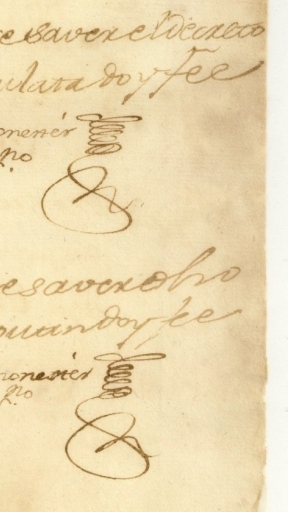 e saver el Decreto
ulata doy fee
onester
no
e saver dho
Juan doy fee
onester
no